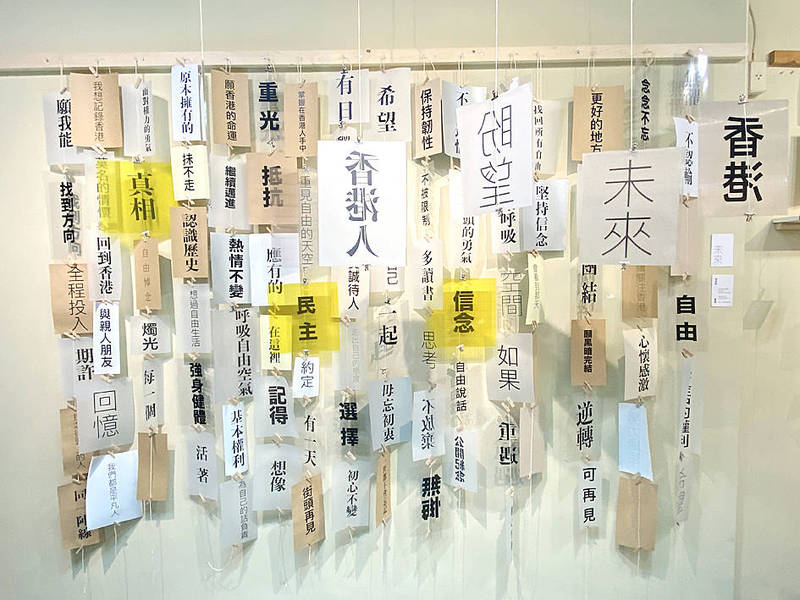 願我能
找到方向
全程投入
期許
回憶
我們都是平凡人
我想記錄香港
真相
回到香港
與親人朋友
面對權力的勇氣
自由悼念
燭光
每一個
原本擁有的
抹不走
認識歷史
想過自由生活
強身健體
活著
願香港的命運
繼續邁進
熱情不變
呼吸自由空氣
基本權利
為自己的話負責
重光
抵抗
應有的
在這裡
記得
想像
掌握在香港人手中
重見自由的天空
民主
約定
有一天
街頭再見
有日
香港人
誠待人
選擇
初心不變
希望
一起
毋忘初衷
保持韌性
不被限制
多讀書
思考
不放棄
無懼
信念
自由說話
公開悼念
盼望
呼吸
空間
如果
重戳
找回所有自由
堅持信念
更好的地方
團結
願黑暗完結
逆轉
可再見
未來
心懷感激
念念不忘
不認輸
自由
香港
未來